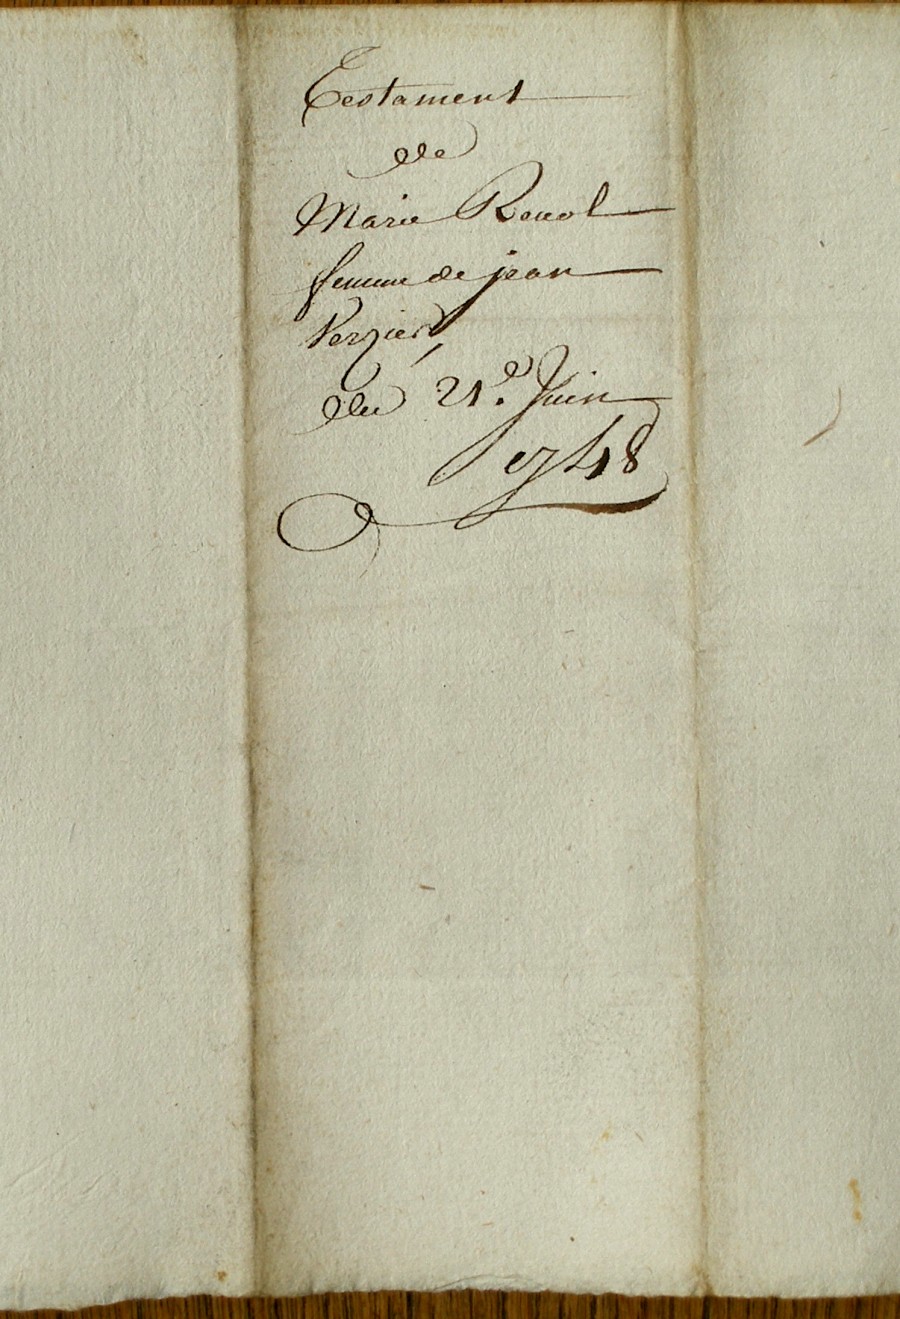 Testament
de
Marie Renol
femme de jean
Verzier,
du 21.e Juin